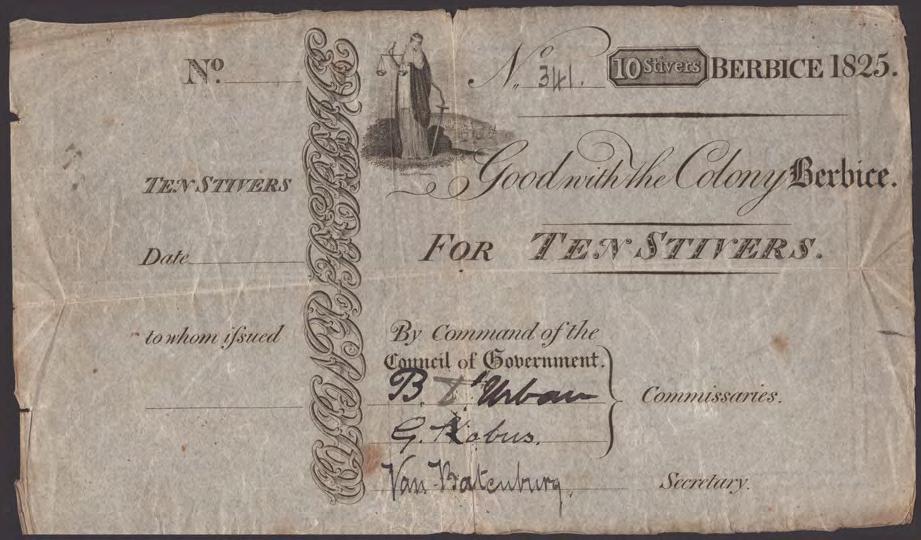 No.
TEN STIVERS
Date
to whom ifsued
No. 341.
10 Stivers
BERBICE 1825.
Good with the Colony Berbice.
FOR TEN STIVERS.
By Command of the
Council of Government.
B. D'Urban
G. Kobus.
Commissaries.
Van Batenburg.
Secretary.